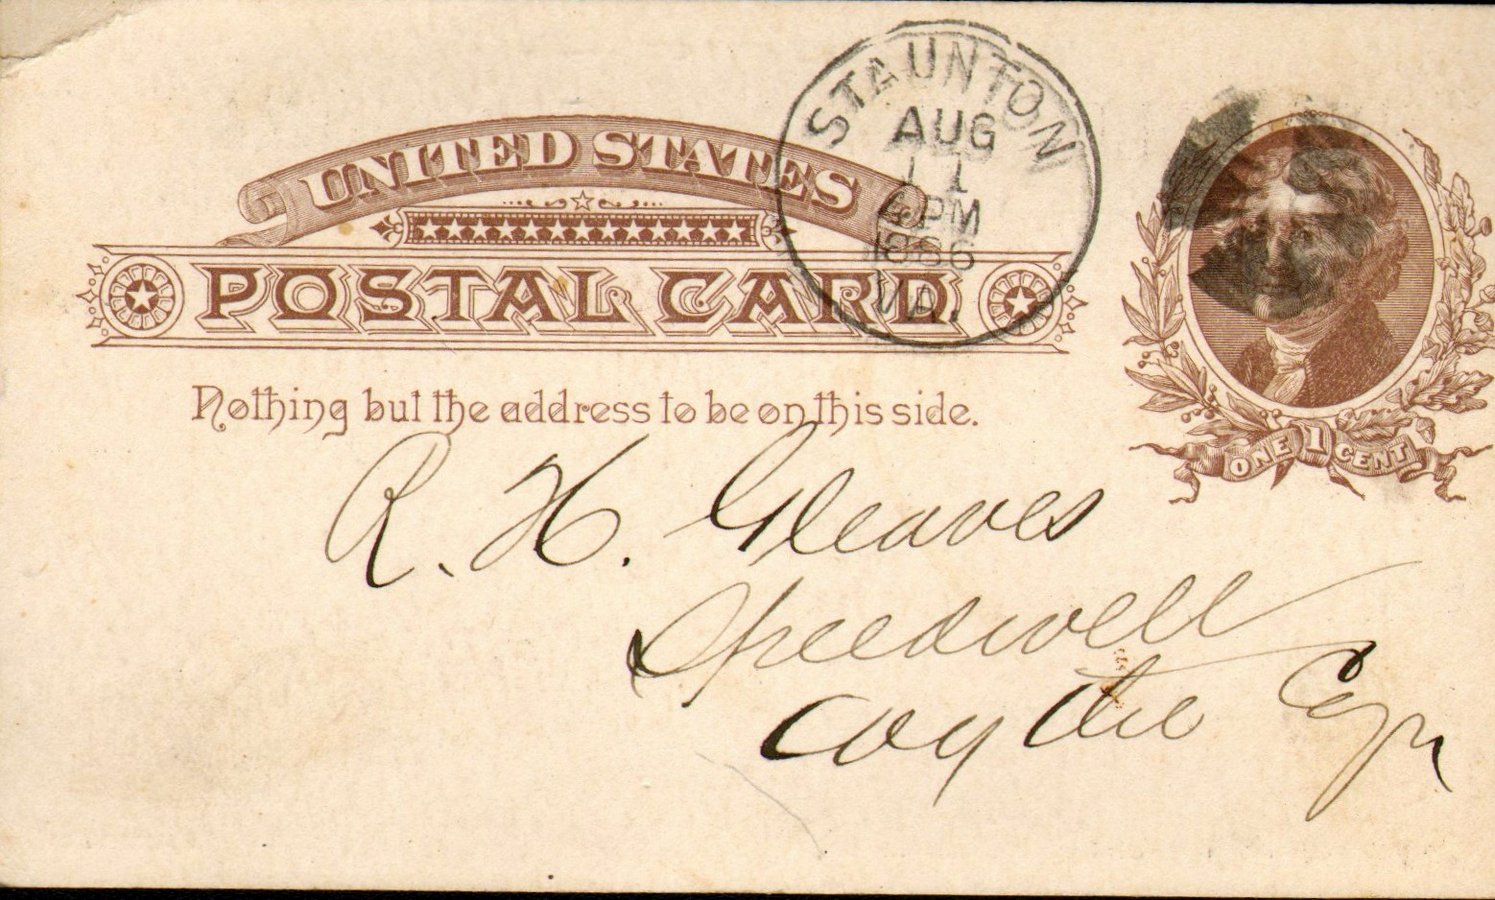 UNITED STATES
POSTAL CARD
STAUNTON
AUG
11
4 PM
1886
VA.
Nothing but the address to be on this side.
ONE 1 CENT
R. H. Gleaves
Speedwell
Wythe Co